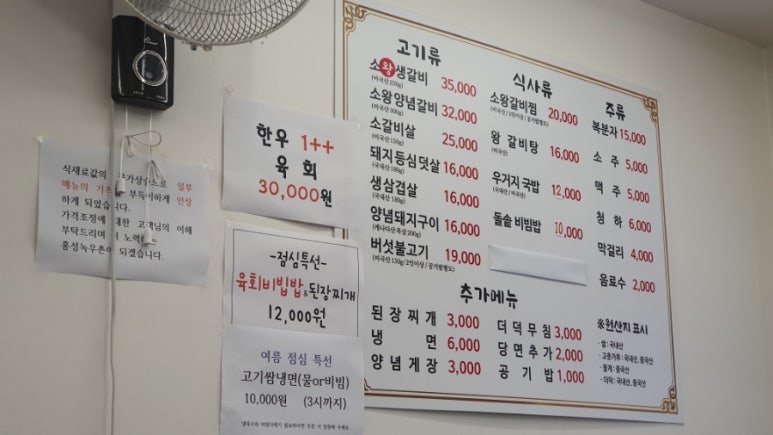 식재료값의
일부
메뉴의
부득이하게 인상
하게 되었습니다.
가격조정에 대한 고객님의 이해
부탁드리며
홍성녹우촌이 되겠습니다.
한우 1++
육회
30,000원
-점심특선-
육회비빔밥&된장찌개
12,000원
여름 점심 특선
고기쌈냉면(물or비빔)
10,000원 (3시까지)
고기류
소왕생갈비 35,000
소왕양념갈비 32,000
(미국산 300g)
소갈비살 25,000
(미국산 150g)
돼지등심덧살 16,000
(국내산 180g)
생삼겹살 16,000
(국내산 180g)
양념돼지구이 16,000
(캐나다산 목살 200g)
버섯불고기 19,000
(미국산 150g/2인이상/공기밥별도)
식사류
소왕갈비찜 20,000
(미국산/2인이상/공기밥별도)
왕 갈비탕 16,000
(미국산)
우거지 국밥 12,000
(국내산/미국산)
돌솥 비빔밥 10,000
주류
복분자 15,000
소 주 5,000
맥 주 5,000
청 하 6,000
막걸리 4,000
음료수 2,000
추가메뉴
된장찌개 3,000
냉 면 6,000
양념게장 3,000
더덕무침 3,000
당면추가 2,000
공 기 밥 1,000
※원산지 표시
· 쌀 : 국내산
· 고춧가루 : 국내산, 중국산
· 꽃게 : 중국산
· 더덕 : 국내산, 중국산